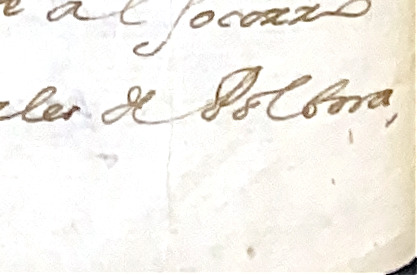 e al socorro
les de Polbora,